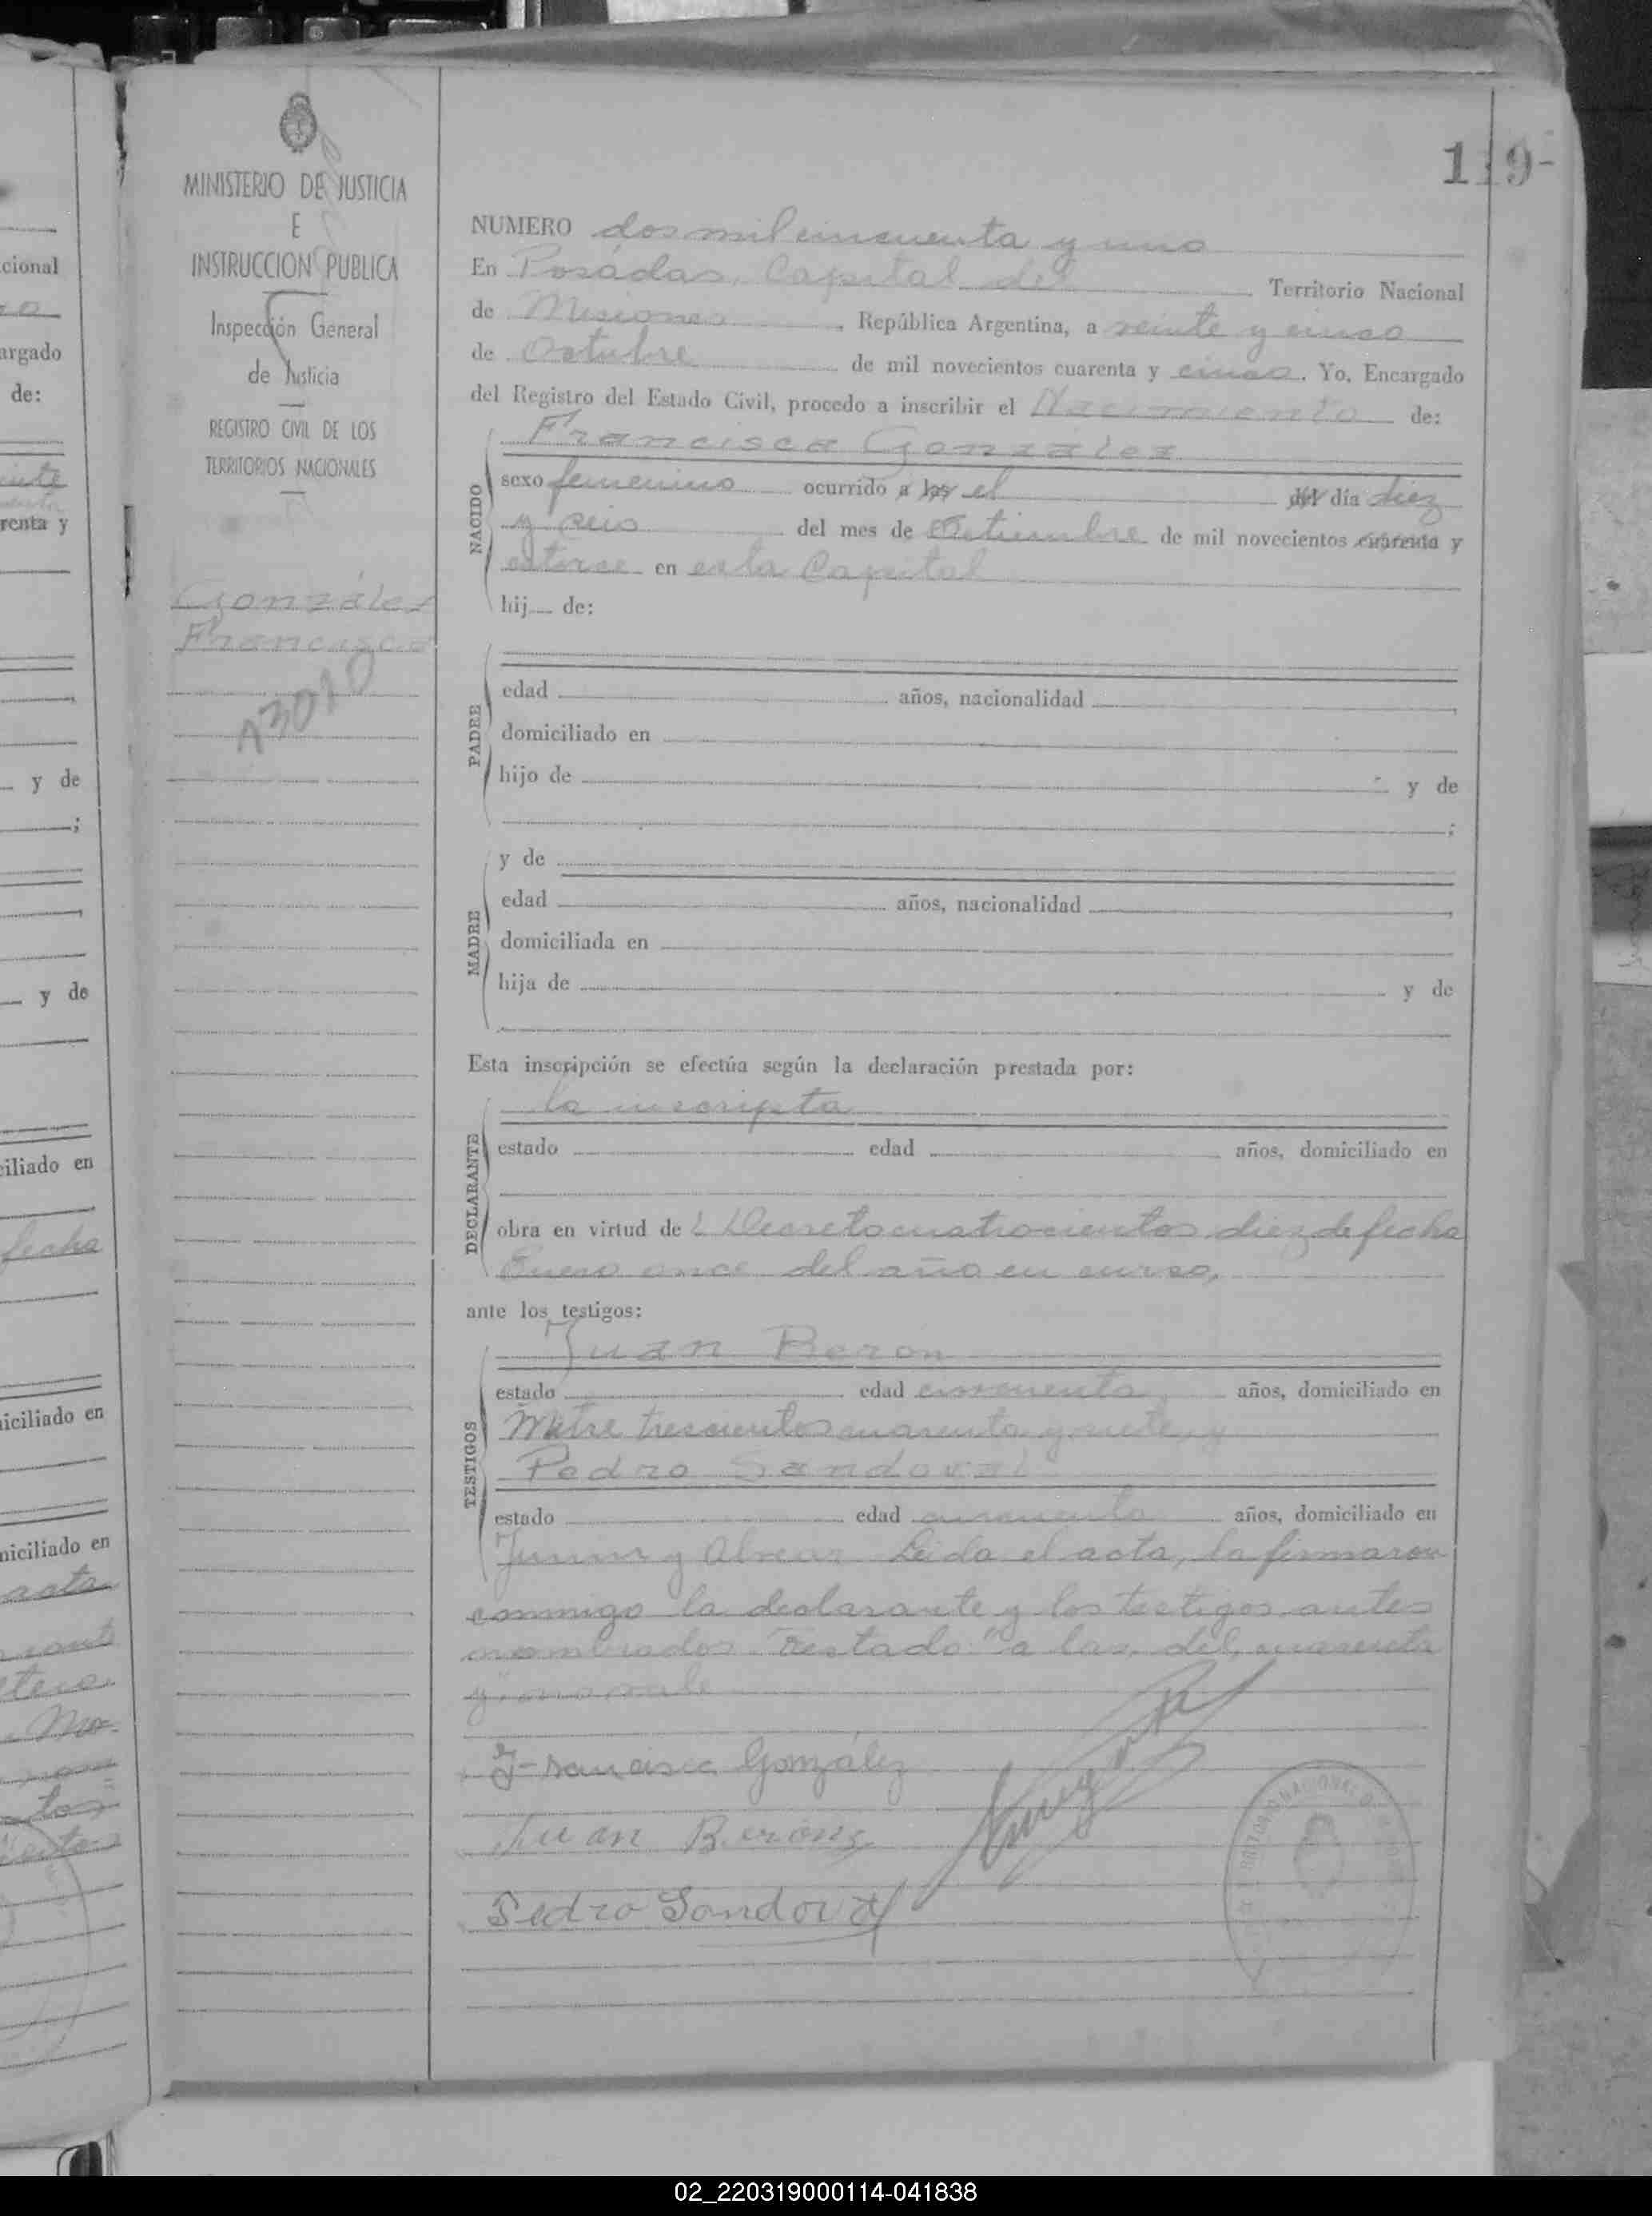 119-
MINISTERIO DE JUSTICIA
E
INSTRUCCION PUBLICA
Inspección General
de Justicia
REGISTRO CIVIL DE LOS
TERRITORIOS NACIONALES
González
Francisca
13010
NUMERO dos mil cincuenta y uno
En Posadas, Capital del Territorio Nacional
de Misiones, República Argentina, a veinte y cinco
de Octubre de mil novecientos cuarenta y cinco. Yo, Encargado
del Registro del Estado Civil, procedo a inscribir el Nacimiento de:
Francisca González
NACIDO
sexo femenino ocurrido a las el del día diez
y seis del mes de Setiembre de mil novecientos cuarenta y
catorce en esta Capital
hij de:
PADRE
edad años, nacionalidad
domiciliado en
hijo de y de
;
MADRE
y de
edad años, nacionalidad
domiciliada en
hija de y de
Esta inscripción se efectúa según la declaración prestada por:
DECLARANTE
la inscripta
estado edad años, domiciliado en
obra en virtud de Decreto cuatrocientos diez de fecha
Enero once del año en curso,
ante los testigos:
TESTIGOS
Juan Beron
estado edad cincuenta años, domiciliado en
Mitre trescientos cuarenta y siete, y
Pedro Sandoval
estado edad años, domiciliado en
Junin y Alvear. Leida el acta, la firmaron
conmigo la declarante y los testigos antes
nombrados. Testado: "a las, del, cuarenta
y" no vale
Francisca González
Juan Berón
Pedro Sandoval
TERRITORIO NACIONAL
cional
argado
de:
renta y
y de
;
y de
ciliado en
fecha
iciliado en
niciliado en
acta
02_220319000114-041838